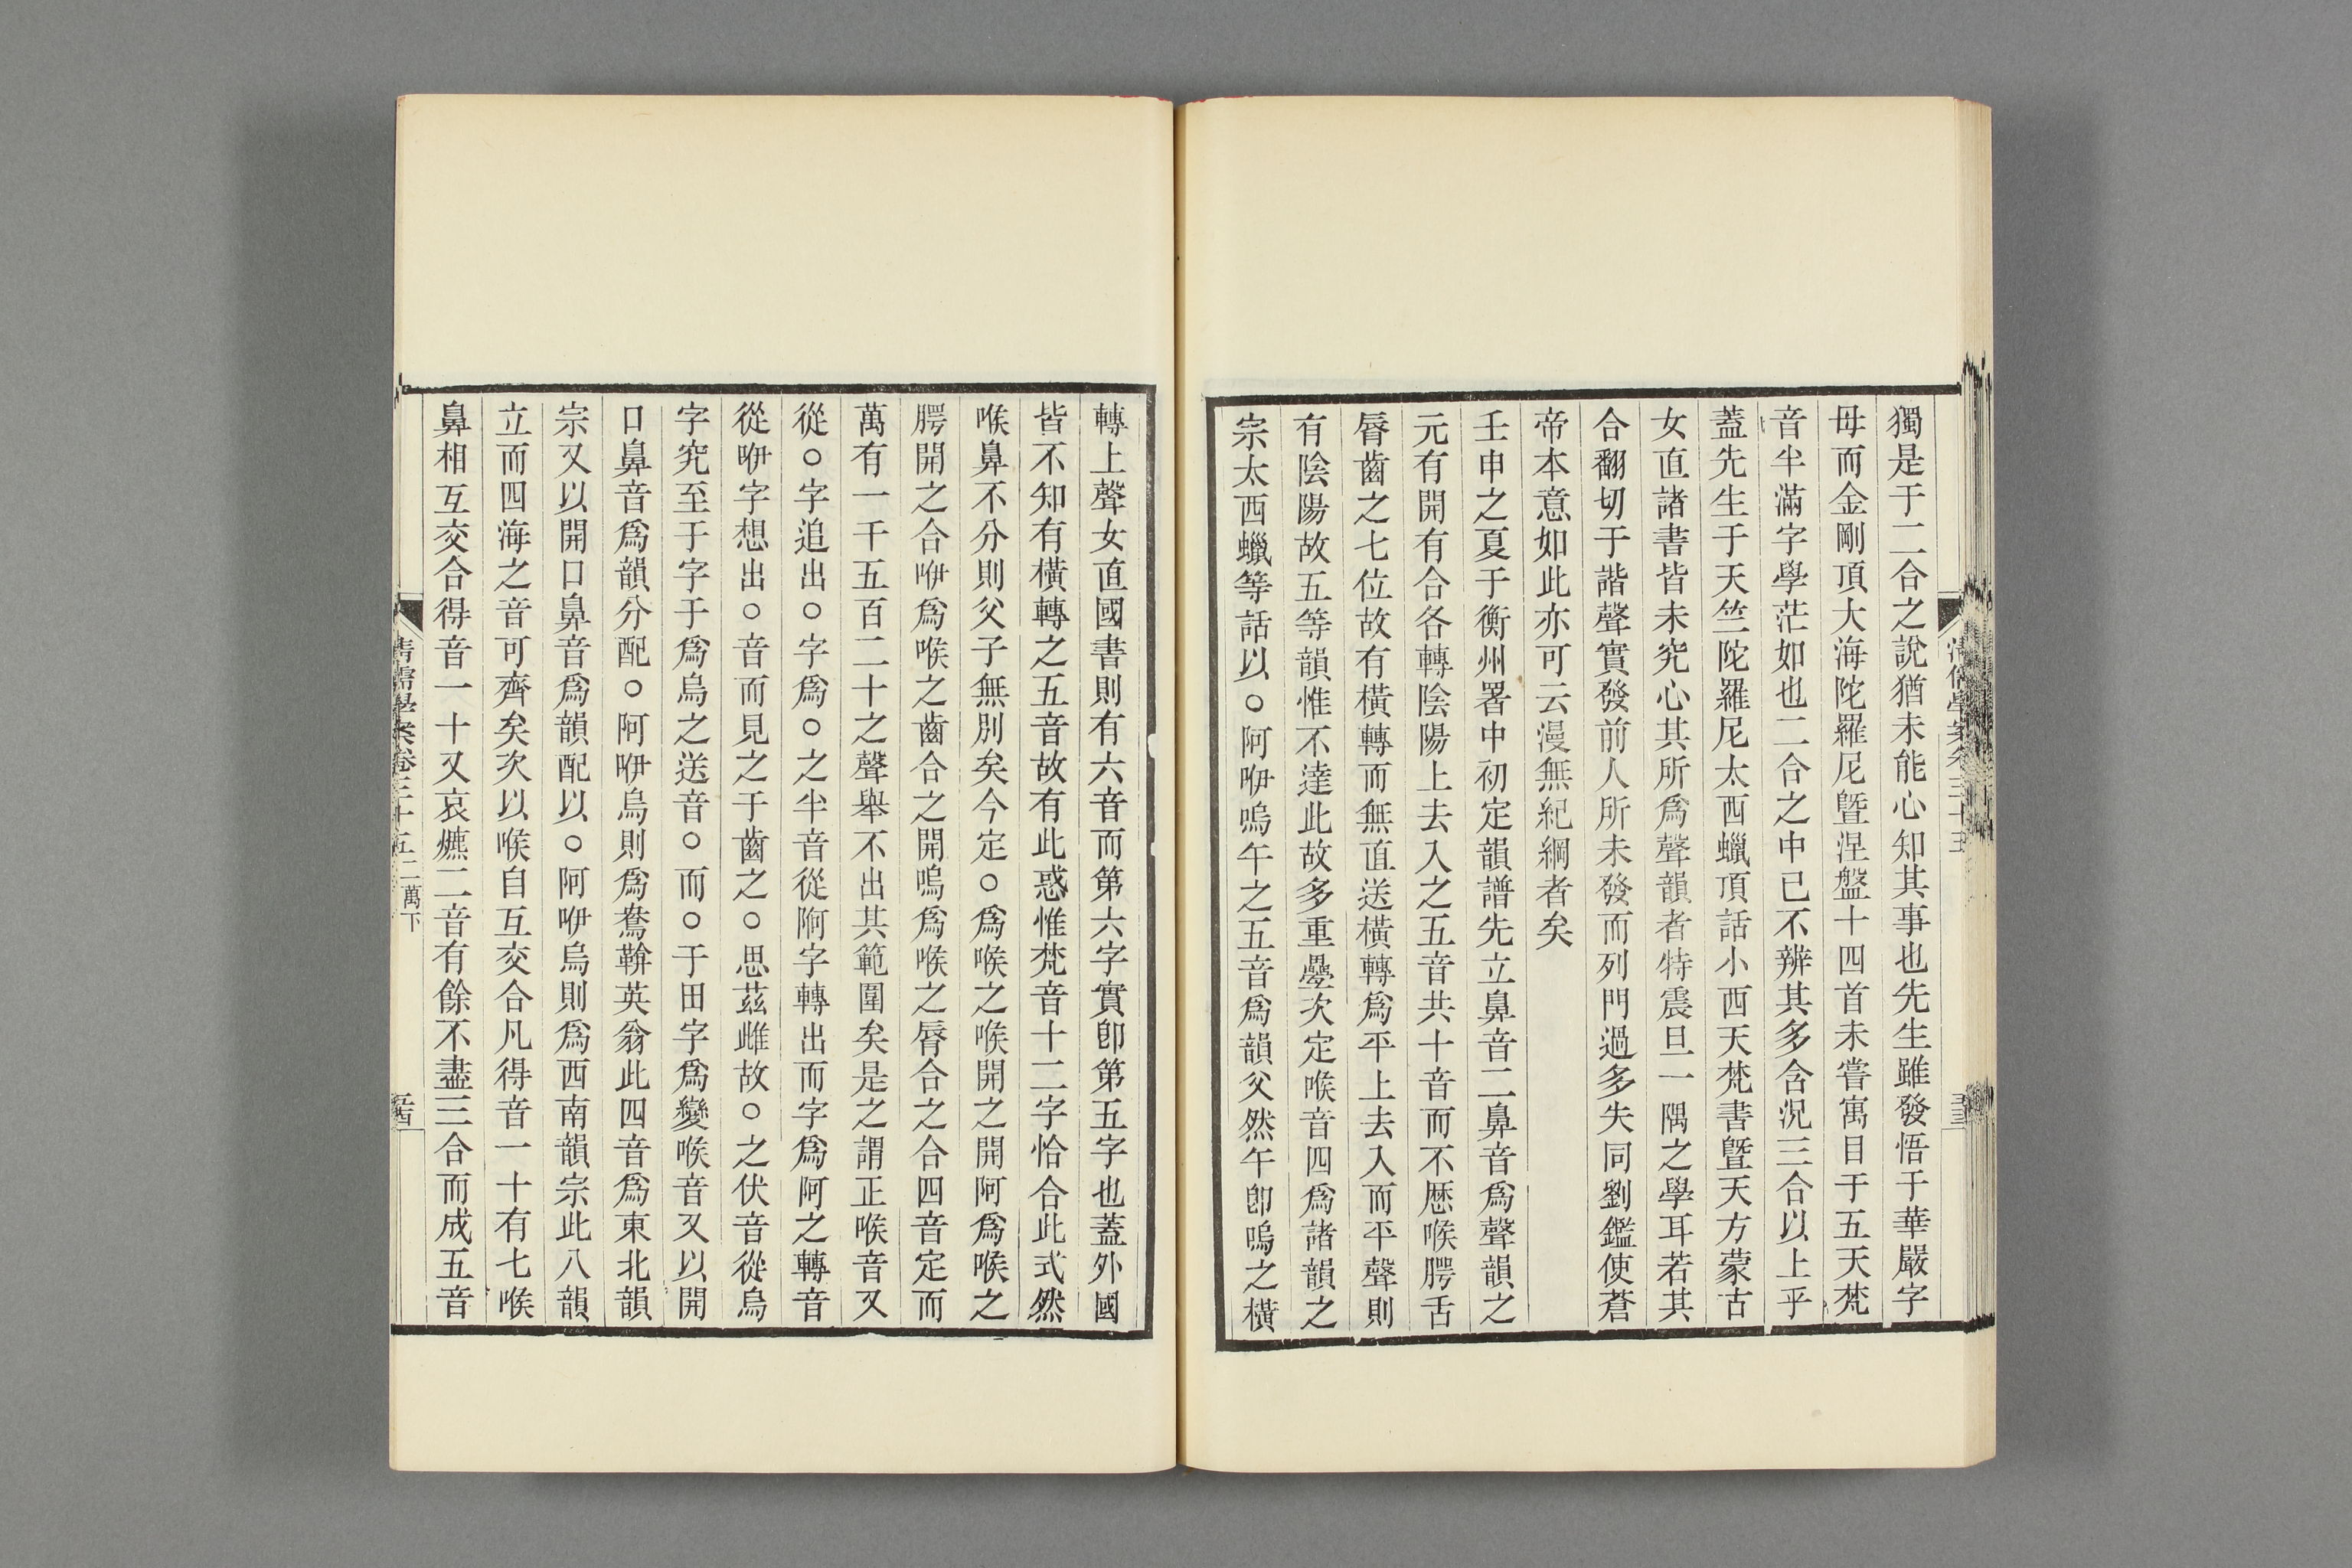 獨是于二合之說猶未能心知其事也先生雖發悟于華嚴字
母而金剛頂大海陀羅尼曁涅盤十四首未嘗寓目于五天梵
音半滿字學茫如也二合之中已不辨其多含況三合以上乎
蓋先生于天竺陀羅尼太西蠟頂話小西天梵書曁天方蒙古
女直諸書皆未究心其所爲聲韻者特震旦一隅之學耳若其
合翻切于諧聲實發前人所未發而列門過多失同劉鑑使蒼
帝本意如此亦可云漫無紀綱者矣
壬申之夏于衡州署中初定韻譜先立鼻音二鼻音爲聲韻之
元有開有合各轉陰陽上去入之五音共十音而不歷喉腭舌
脣齒之七位故有橫轉而無直送橫轉爲平上去入而平聲則
有陰陽故五等韻惟不達此故多重疊次定喉音四爲諸韻之
宗太西蠟等話以○阿咿嗚午之五音爲韻父然午卽嗚之橫
轉上聲女直國書則有六音而第六字實卽第五字也蓋外國
皆不知有橫轉之五音故有此惑惟梵音十二字恰合此式然
喉鼻不分則父子無別矣今定○爲喉之喉開之開阿爲喉之
腭開之合咿爲喉之齒合之開嗚爲喉之脣合之合四音定而
萬有一千五百二十之聲舉不出其範圍矣是之謂正喉音又
從○字追出○字爲○之半音從阿字轉出而字爲阿之轉音
從咿字想出○音而見之于齒之○思茲雌故○之伏音從烏
字究至于字于爲烏之送音○而○于田字爲變喉音又以開
口鼻音爲韻分配○阿咿烏則爲鴦鞥英翁此四音爲東北韻
宗又以開口鼻音爲韻配以○阿咿烏則爲西南韻宗此八韻
立而四海之音可齊矣次以喉自互交合凡得音一十有七喉
鼻相互交合得音一十又哀𤑔二音有餘不盡三合而成五音
清儒學案卷三十五
二萬下